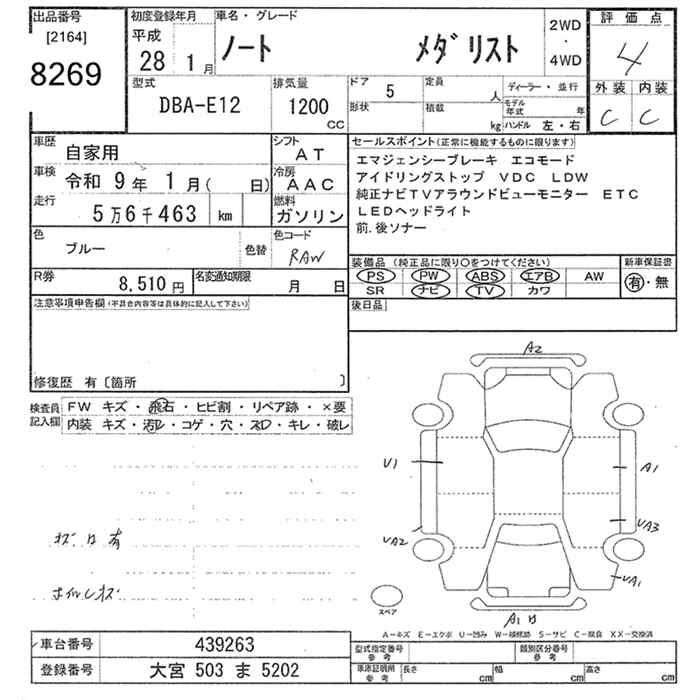 出品番号 初度登録年月 車名・グレード 評価点
[2164] 平成 ノート メダリスト 2WD
8269 28 1月 ・4WD 4
型式 排気量 ドア 5 定員 人 ディーラー・並行 外装 内装
DBA-E12 1200 CC 形状 積載 kg モデル年式 年 C C
ハンドル 左・右
車歴 自家用 シフト AT セールスポイント(正常に機能するものに限ります)
車検 令和 9年 1月( 日) 冷房 AAC エマジェンシーブレーキ エコモード
走行 5万6千463 km 燃料 ガソリン アイドリングストップ VDC LDW
純正ナビTVアラウンドビューモニター ETC
LEDヘッドライト
前.後ソナー
色 ブルー 色替 色コード RAW
装備品(純正品に限り○をつけてください) 新車保証書
R券 8,510円 名変通知期限 月 日 PS PW ABS エアB AW 有・無
SR ナビ TV カワ
注意事項申告欄(不具合内容等は具体的に記入して下さい) 後日品
修復歴 有〔箇所 〕
検査員記入欄 FW キズ・飛石・ヒビ割・リペア跡・×要
内装 キズ・汚レ・コゲ・穴・スレ・キレ・破レ
A2
U1 A1
UA2 UA3
UA1
A1
スペア
A-キズ E-エクボ U-凹み W-補修跡 S-サビ C-腐食 XX-交換済
車台番号 439263 型式指定番号 参考 類別区分番号 参考
登録番号 大宮 503 ま 5202 車庫証明用 参考 長さ cm 幅 cm 高さ cm